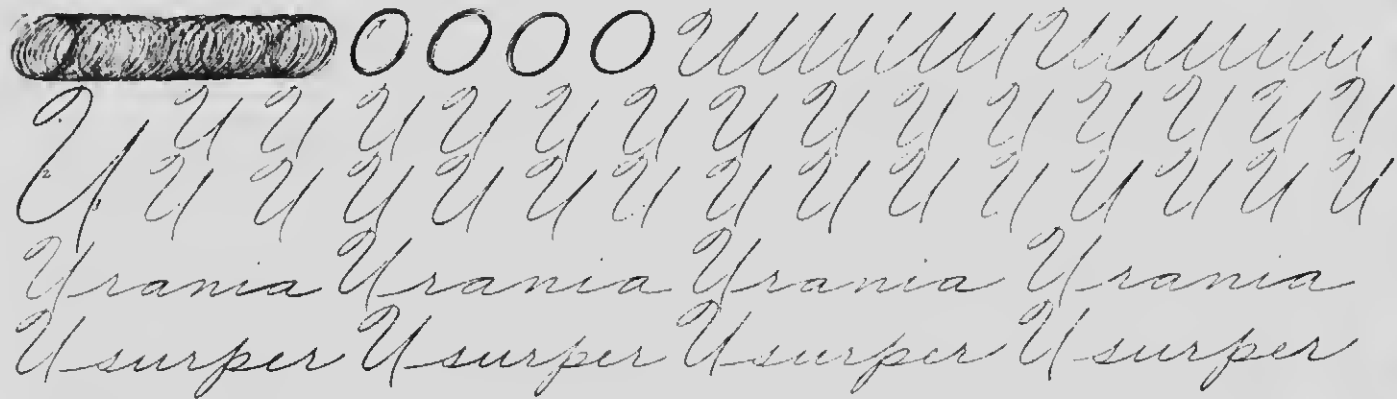 O O O O
U U U U U U U U U U U U U U U
U U U U U U U U U U U U U U
Urania Urania Urania Urania
Usurper Usurper Usurper Usurper